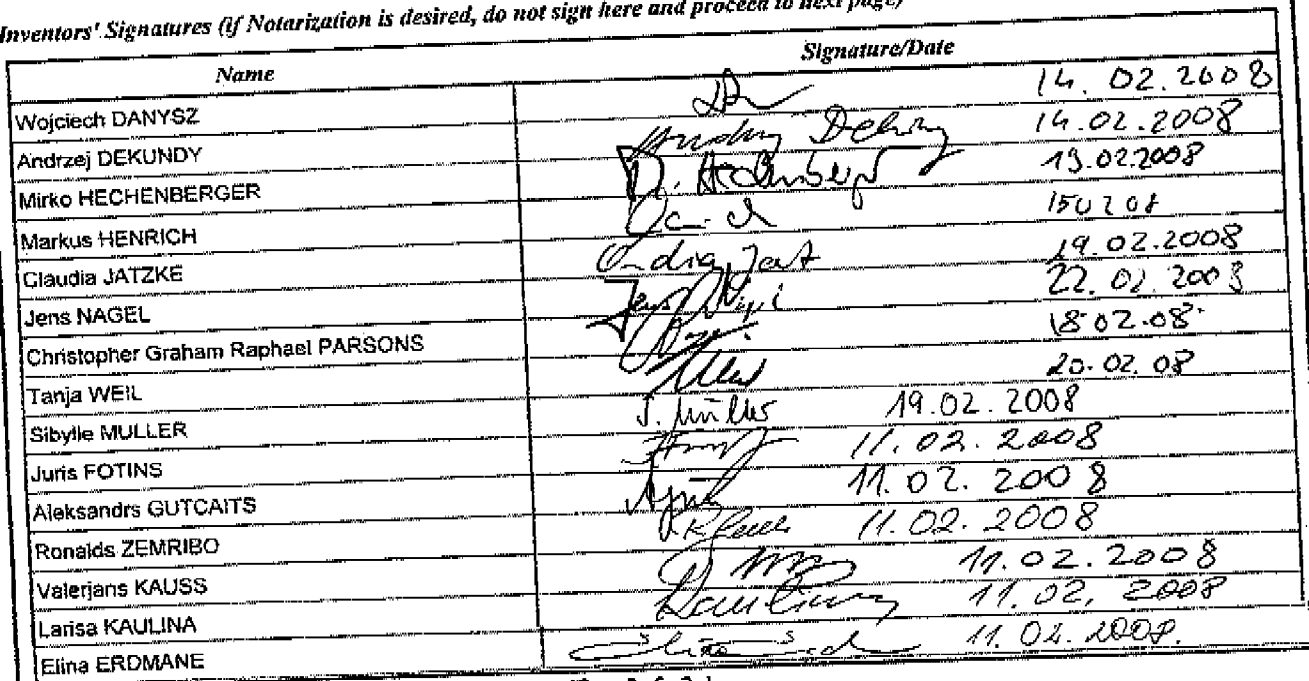 Inventors' Signatures (if Notarization is desired, do not sign here and proceed to next page)
Name Signature/Date
Wojciech DANYSZ 14. 02. 2008
Andrzej DEKUNDY 14.02.2008
Mirko HECHENBERGER 19.02.2008
Markus HENRICH 150208
Claudia JATZKE 19.02.2008
Jens NAGEL Jens 22.02.2008
Christopher Graham Raphael PARSONS 18.02.08
Tanja WEIL 20.02.08
Sibylle MULLER S. Müller 19.02.2008
Juris FOTINS 11.02.2008
Aleksandrs GUTCAITS 11.02.2008
Ronalds ZEMRIBO 11.02.2008
Valerjans KAUSS 11.02.2008
Larisa KAULINA 11.02, 2008
Elina ERDMANE 11.02.2008.